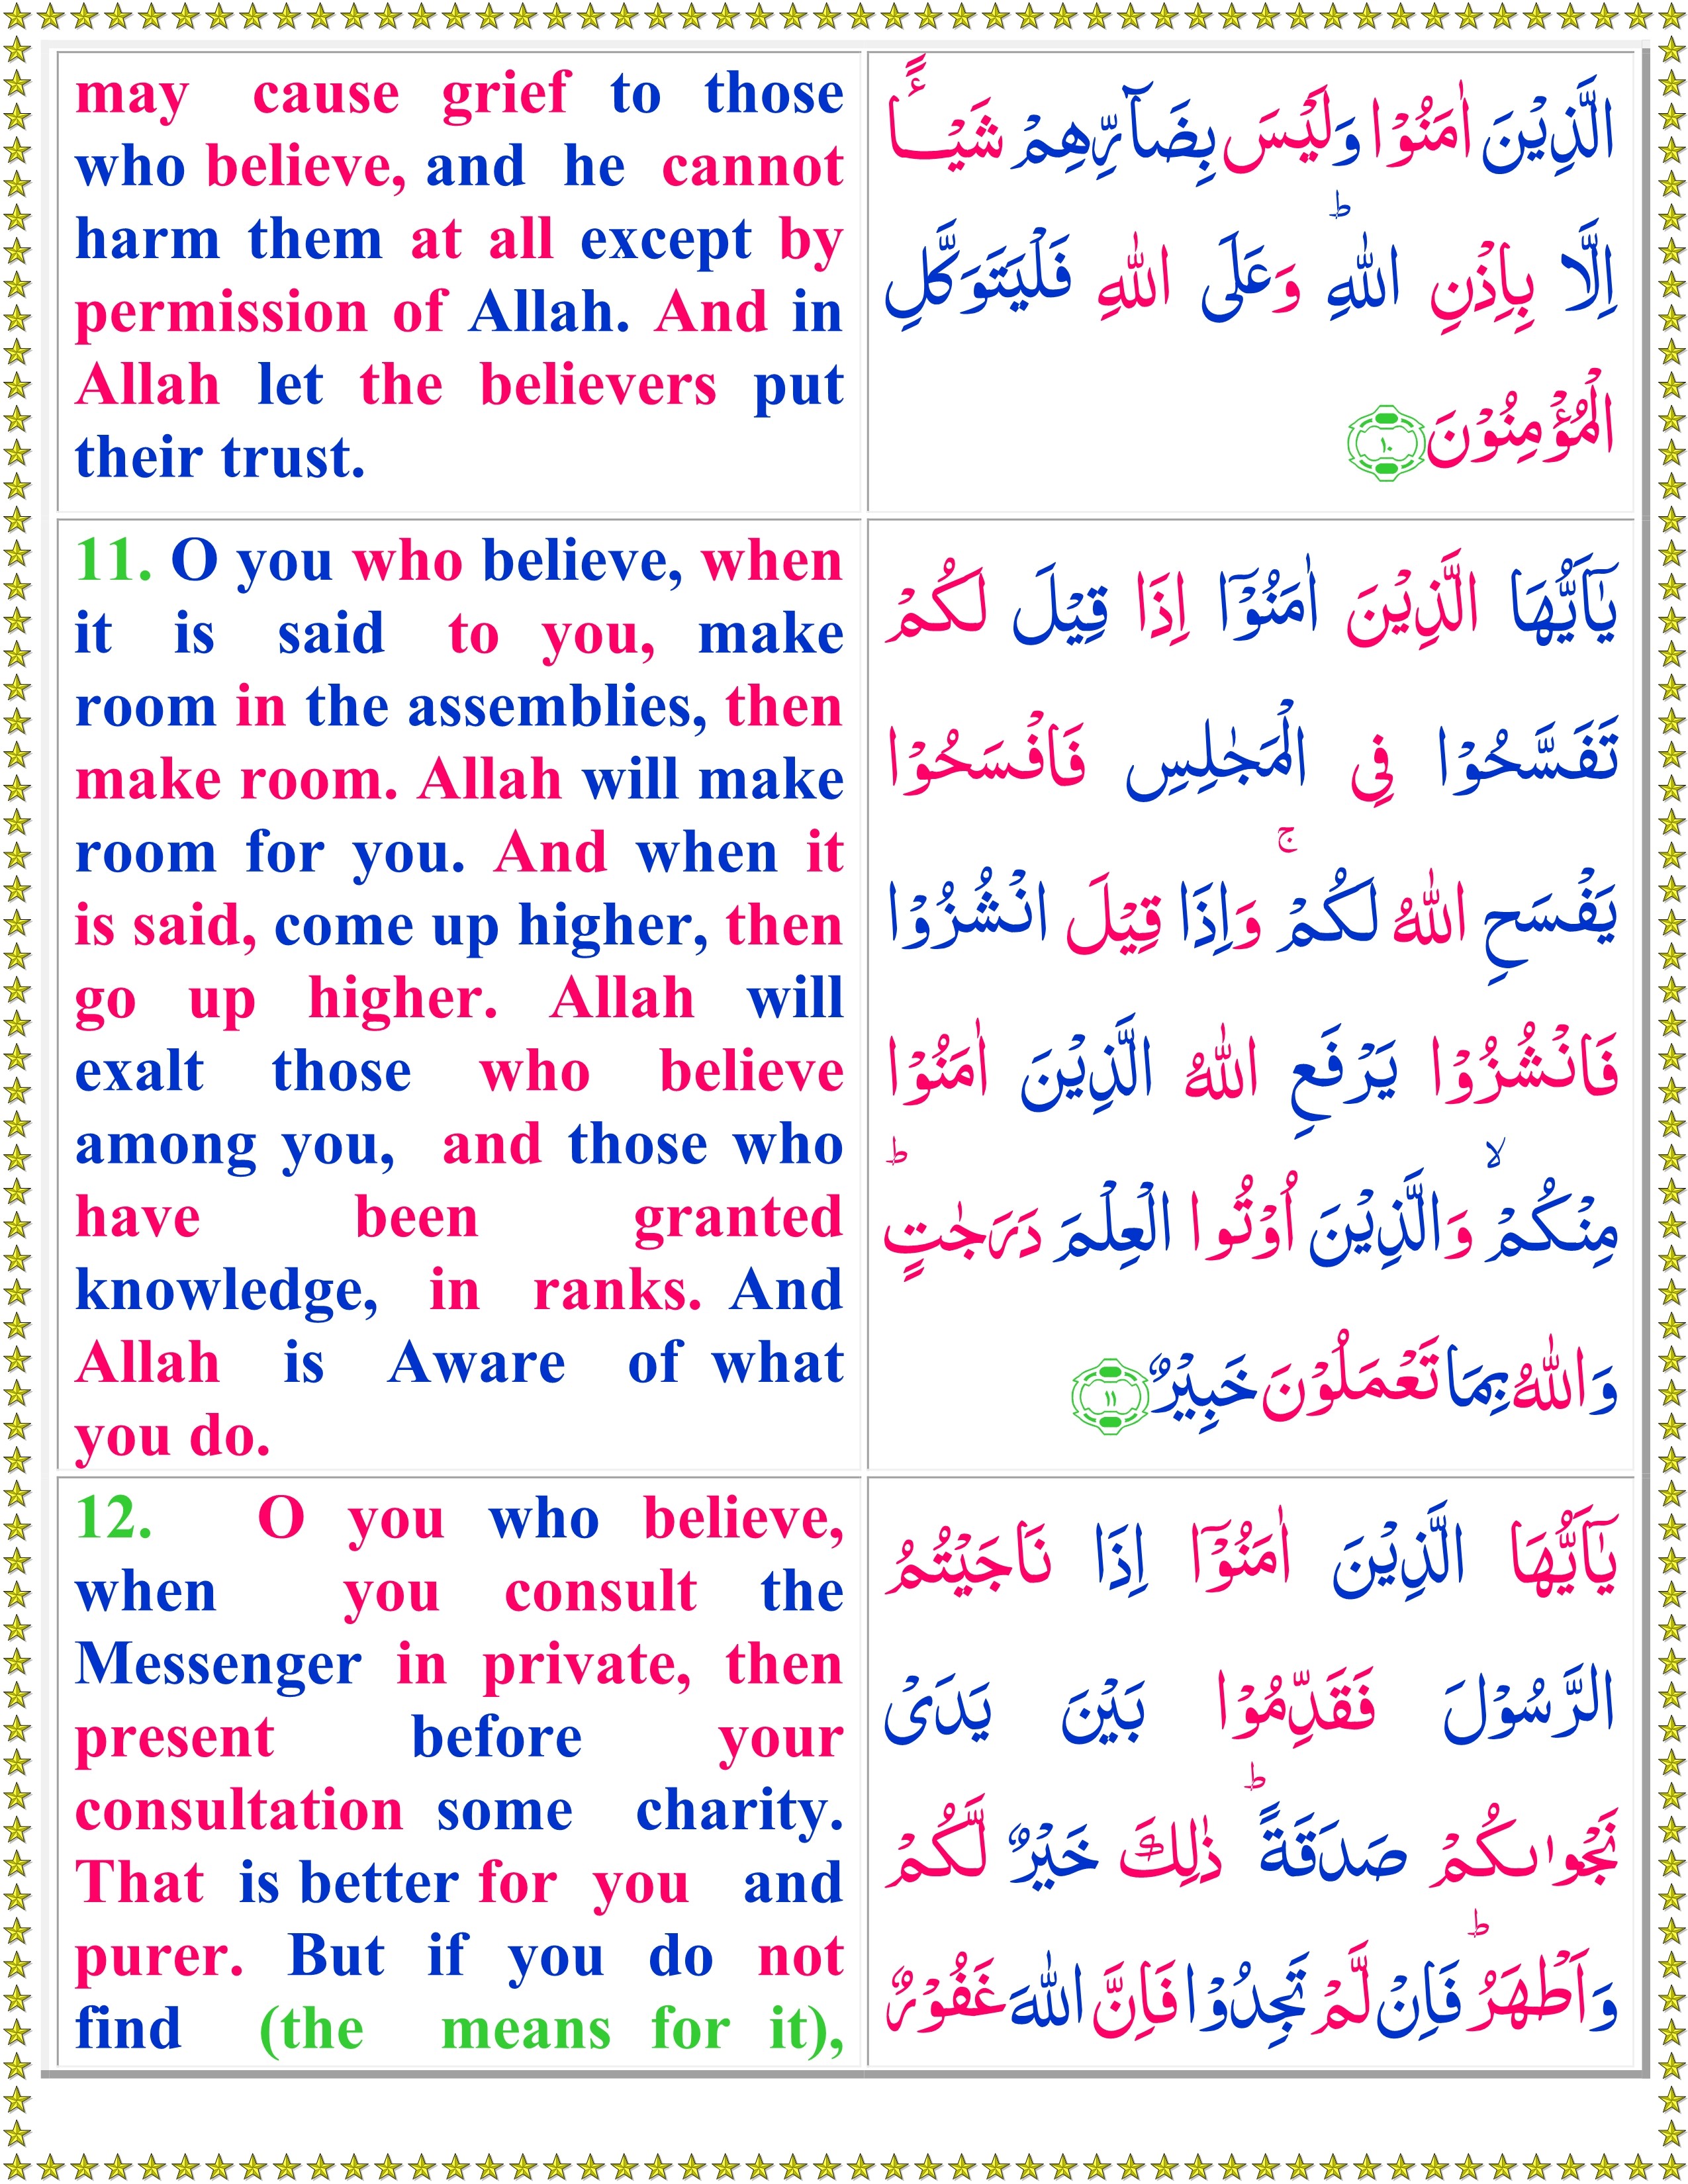 may cause grief to those
who believe, and he cannot
harm them at all except by
permission of Allah. And in
Allah let the believers put
their trust.
الَّذِيْنَ اٰمَنُوْا وَلَيْسَ بِضَآرِّهِمْ شَيْـــًٔا
اِلَّا بِاِذْنِ اللّٰهِ ؕ وَعَلَى اللّٰهِ فَلْيَتَوَكَّلِ
الْمُؤْمِنُوْنَ ۱۰
11. O you who believe, when
it is said to you, make
room in the assemblies, then
make room. Allah will make
room for you. And when it
is said, come up higher, then
go up higher. Allah will
exalt those who believe
among you, and those who
have been granted
knowledge, in ranks. And
Allah is Aware of what
you do.
يٰۤاَيُّهَا الَّذِيْنَ اٰمَنُوْۤا اِذَا قِيْلَ لَكُمْ
تَفَسَّحُوْا فِى الْمَجٰلِسِ فَافْسَحُوْا
يَفْسَحِ اللّٰهُ لَكُمْ ۚ وَاِذَا قِيْلَ انْشُزُوْا
فَانْشُزُوْا يَرْفَعِ اللّٰهُ الَّذِيْنَ اٰمَنُوْا
مِنْكُمْ ۙ وَالَّذِيْنَ اُوْتُوا الْعِلْمَ دَرَجٰتٍ ؕ
وَاللّٰهُ بِمَا تَعْمَلُوْنَ خَبِيْرٌ ۱۱
12. O you who believe,
when you consult the
Messenger in private, then
present before your
consultation some charity.
That is better for you and
purer. But if you do not
find (the means for it),
يٰۤاَيُّهَا الَّذِيْنَ اٰمَنُوْۤا اِذَا نَاجَيْتُمُ
الرَّسُوْلَ فَقَدِّمُوْا بَيْنَ يَدَىْ
نَجْوٰىكُمْ صَدَقَةً ؕ ذٰلِكَ خَيْرٌ لَّكُمْ
وَاَطْهَرُ ؕ فَاِنْ لَّمْ تَجِدُوْا فَاِنَّ اللّٰهَ غَفُوْرٌ